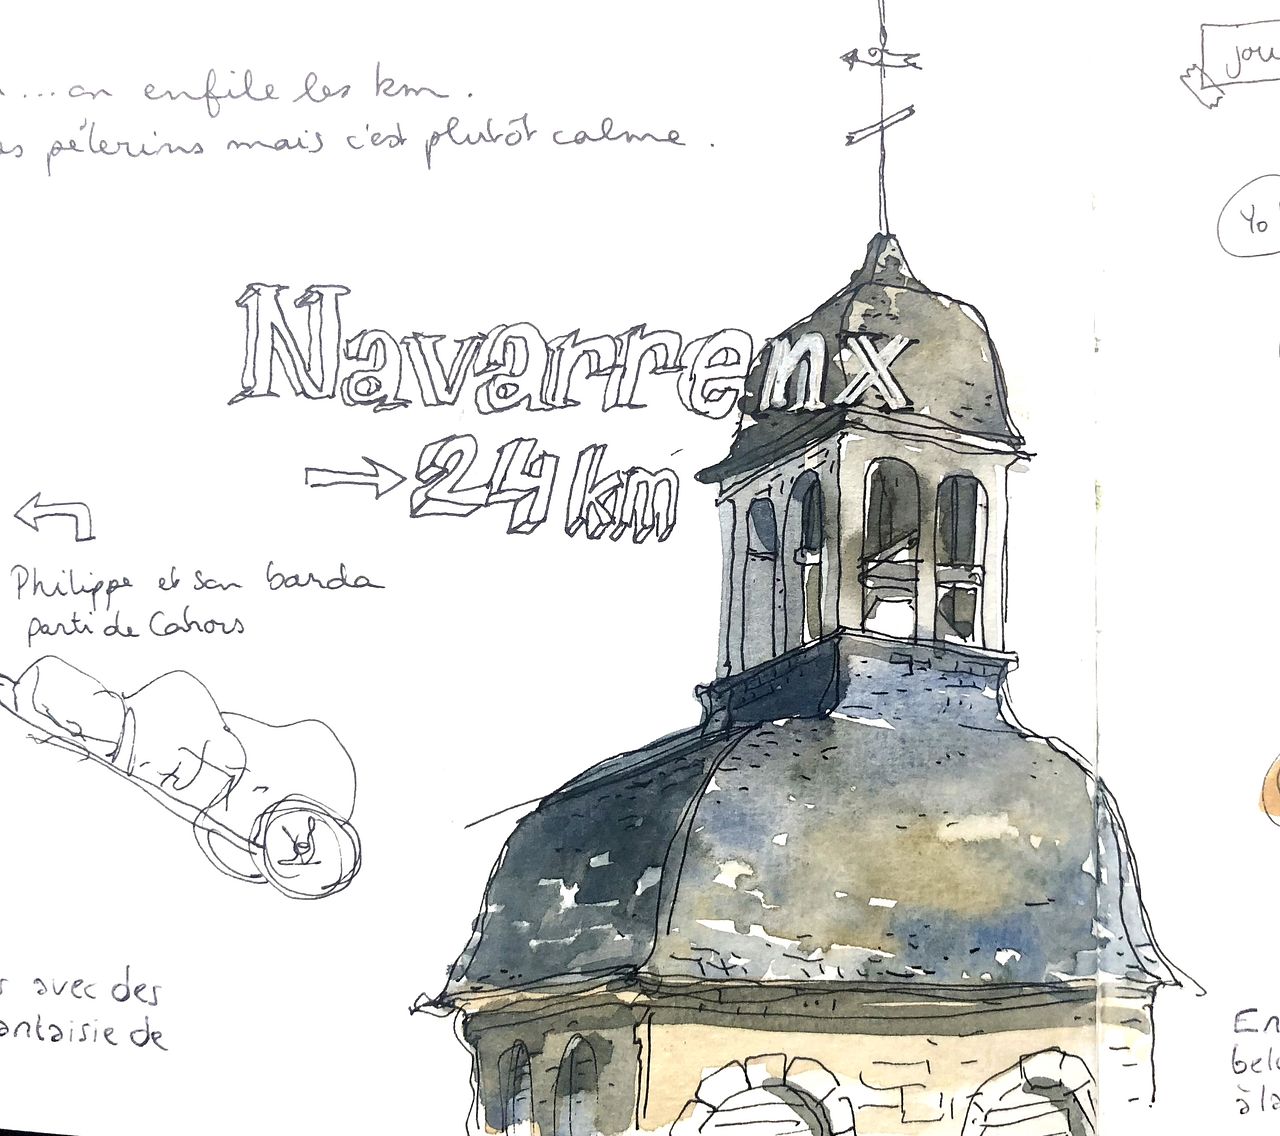 ...on enfile les km.
pélerins mais c'est plutôt calme.
Navarrenx
24 km
Philippe et son barda
parti de Cahors
avec des
de
Yo
En
à la